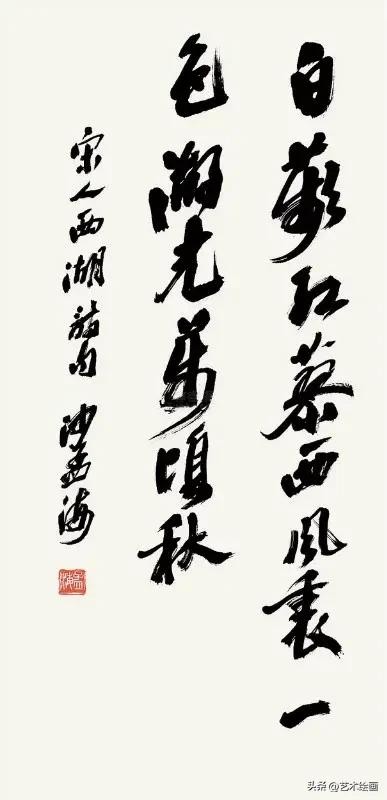 白蘋紅蓼西風裏一
色湖光萬頃秋
宋人西湖句 沙孟海
孟海
头条 @艺术绘画